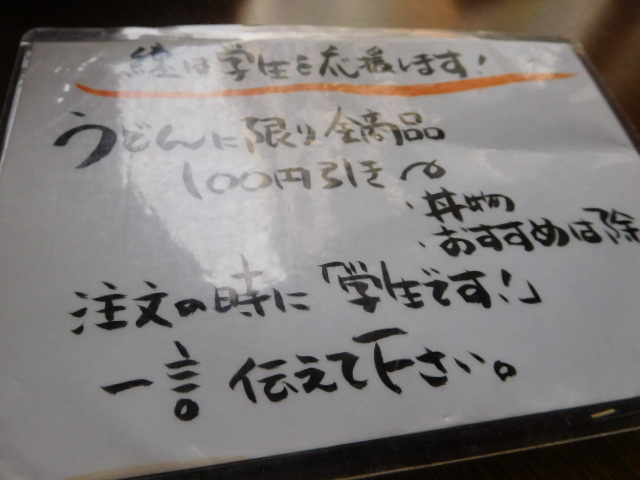 は学生を応援します!
うどんに限り全商品
100円引き
・丼物
・おすすめは除
注文の時に「学生です!」
一言伝えて下さい。